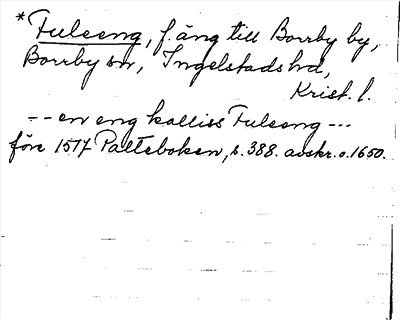 *Fuleeng, f. äng till Borrby by,
Borrby sn, Ingelstads hd,
Krist. l.
-- en eng kalliss Fuleng ---
före 1517 Palteboken, s. 388. avskr. o. 1650.